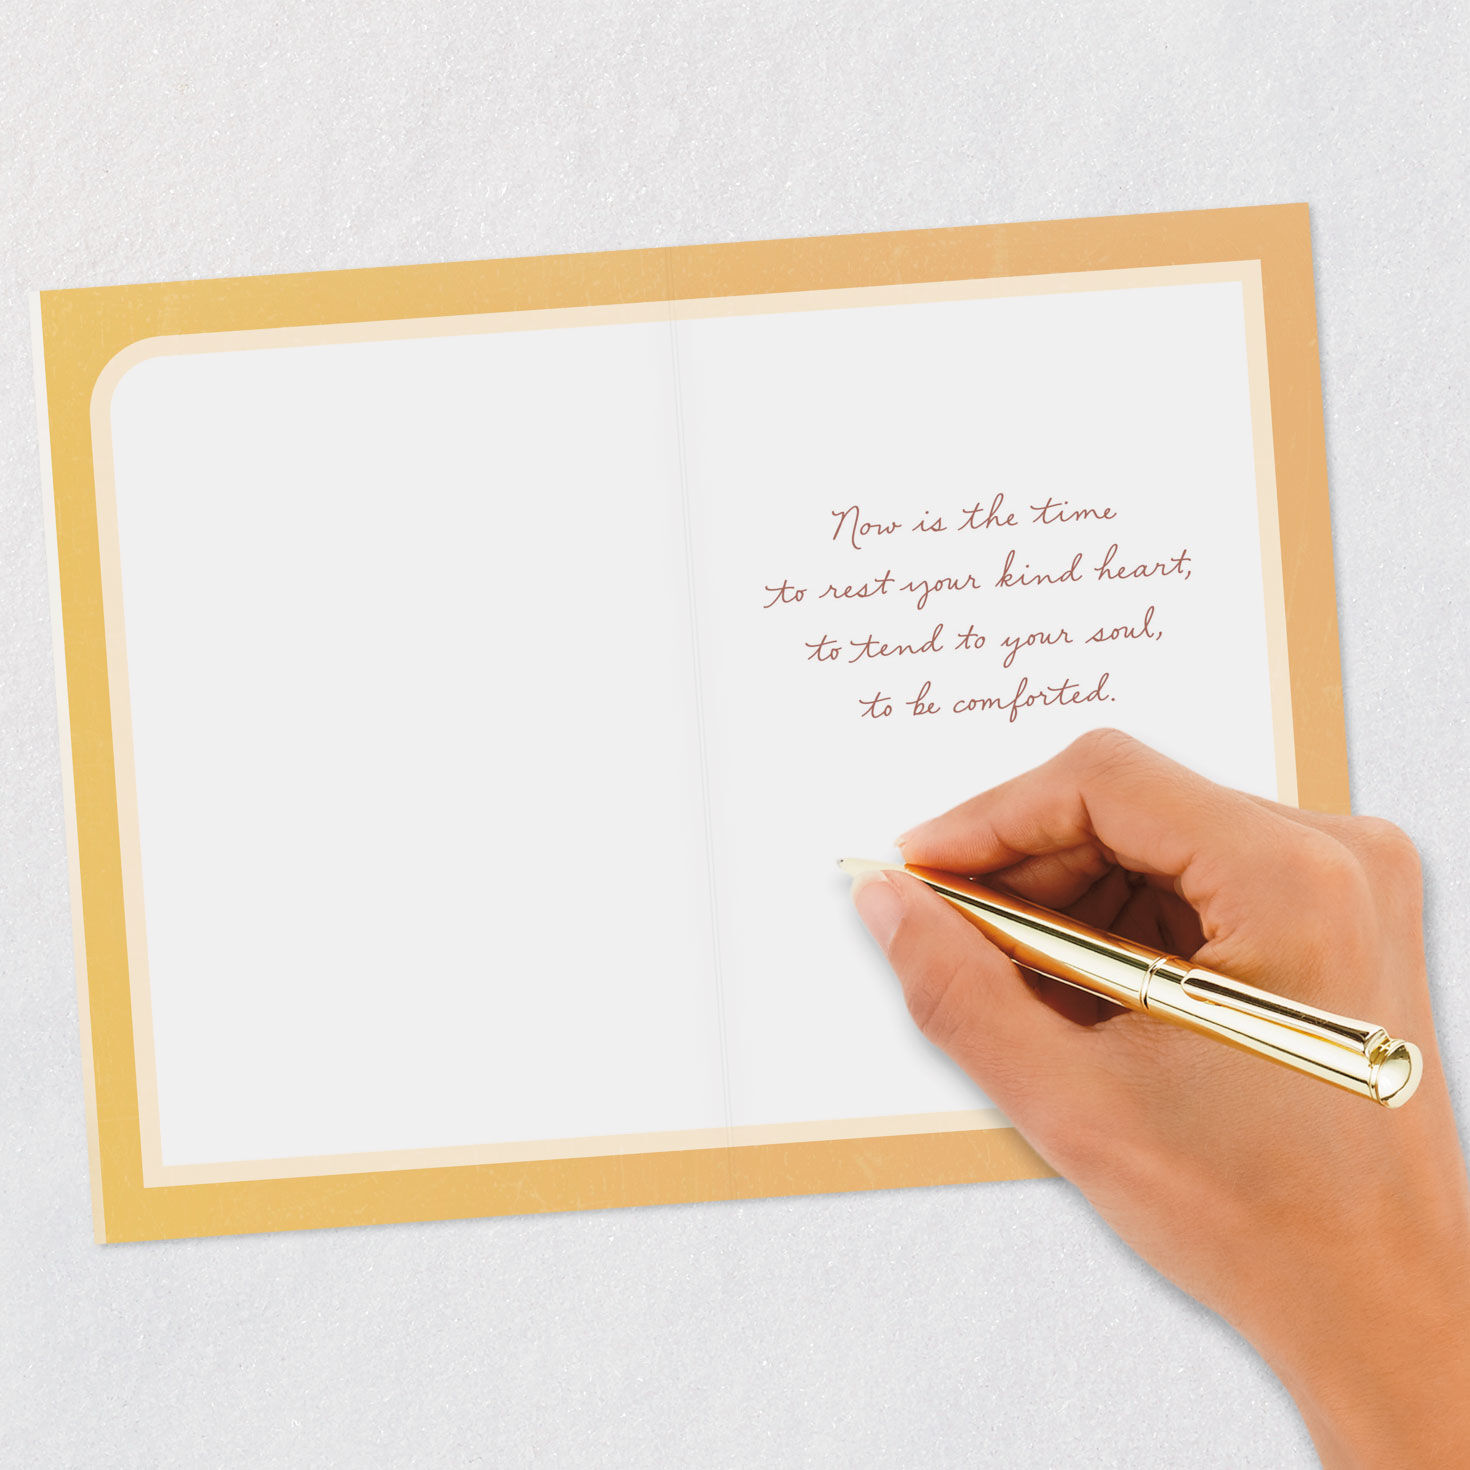 Now is the time
to rest your kind heart,
to tend to your soul,
to be comforted.